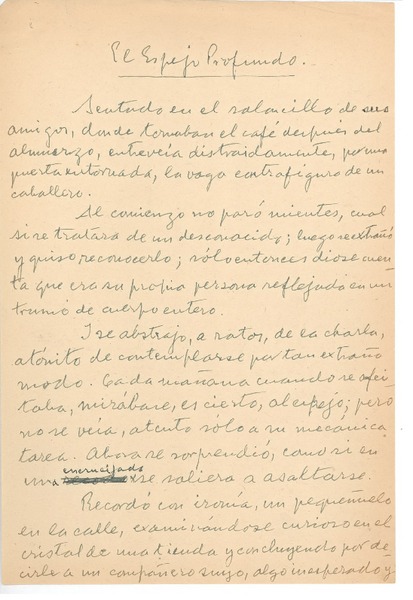 El Espejo Profundo.
Sentado en el saloncillo de sus
amigos, donde tomaban el café después del
almuerzo, entreveía distraidamente, por una
puerta entornada, la vaga contrafigura de un
caballero.
Al comienzo no paró mientes, cual
si se tratara de un desconocido; luego se extrañó
y quiso reconocerlo; sólo entonces diose cuen-
ta que era su propia persona reflejada en un
trumó de cuerpo entero.
I se abstrajo, a ratos, de la charla,
atónito de contemplarse por tan extraño
modo. Cada mañana cuando se afei-
taba, mirábase, es cierto, al espejo; pero
no se veía, atento sólo a su mecanica
tarea. Ahora se sorprendió, como si en
una encrucijada se saliera a asaltarse.
Recordó con ironía, un pequeñuelo
en la calle, examinándose curioso en el
cristal de una tienda y concluyendo por de-
cirle a un compañero suyo, algo inesperado y